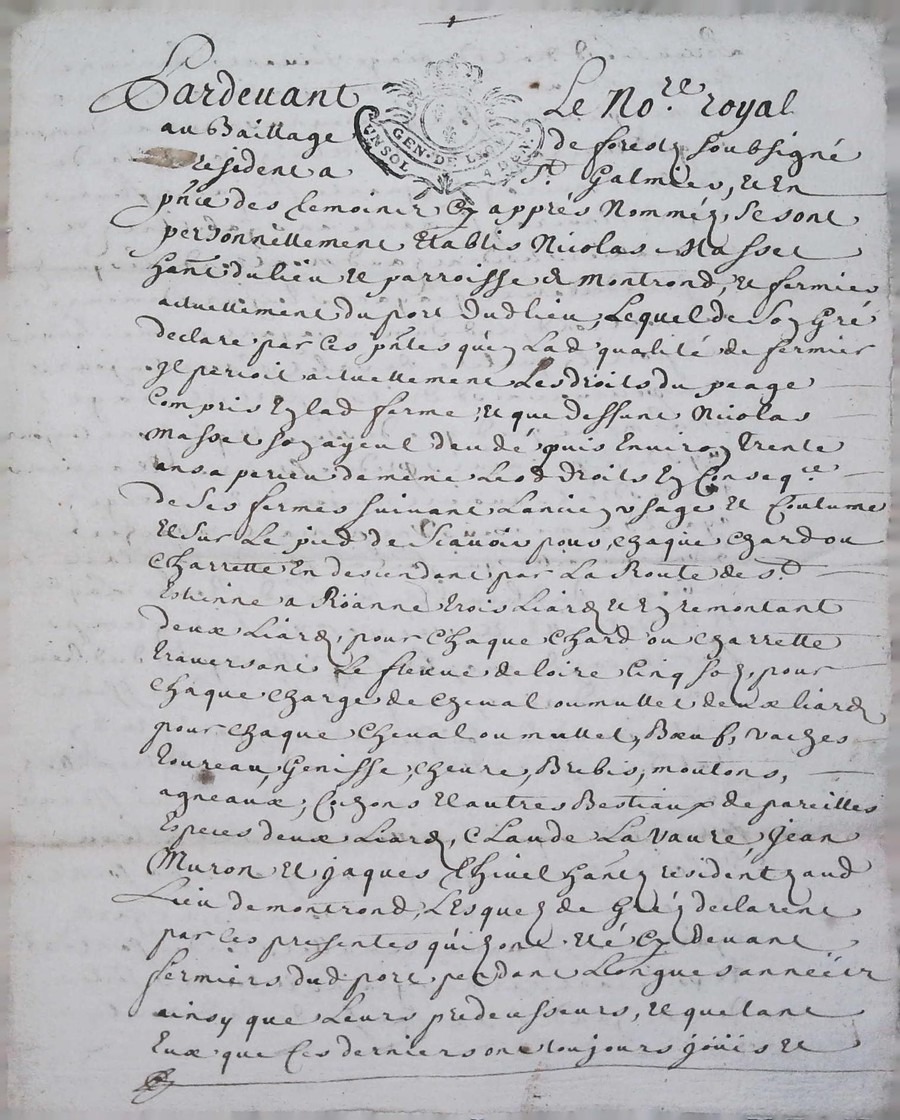 Pardevant Le No.re royal
GEN. DE LYON
UN SOL 4 DEN.
au Baillage de forest soubsigné
résident a St. Galmier, et En
pñce des temoins Cy apprés Nommés, se sont
personnellement Etablis Nicolas Masset
hant du lieu et parroisse de montrond, et fermier
actuellement du port dud lieu, Lequel de Son Gré
declare par Ces pñtes qu'en Lad qualité de fermier
Il percoit actuellement Les droits du peage
Compris En lad ferme, et que deffunt Nicolas
Masset son ayeul deudé puis Environ Trente
ans a perceu de même Lesd droits En Conseq.ce
de Ses fermes suivant Lancien usage et Coutume
et Sur Le pied de Scavoir pour chaque chard ou
Charrette En descendant par La Route de St.
Estienne a Röanne trois Liards et En remontant
deux Liards, pour Chaque Chard ou charrette
traversant Le fleuve de loire Cinq Sols, pour
chaque charge de cheval ou mullet deux liards
pour chaque Cheval ou mullet, Bœuf, vaches
toureau, Genisse, chevre, Brebis, moutons,
agneaux, Cochons et autres Bestiaux de pareilles
Especes deux Liards, CLaude La Vaure Jean
Muron et Jaques Thivel hants résidents aud
Lieu de montrond, LEsquels de Grés declarent
par Ces presentes qu'ils ont été Cy devant
fermiers dud port pendant Longues années
ainsy que Leurs predeusseurs, et que tant
Eux que Ces derniers ont toujours joüis et